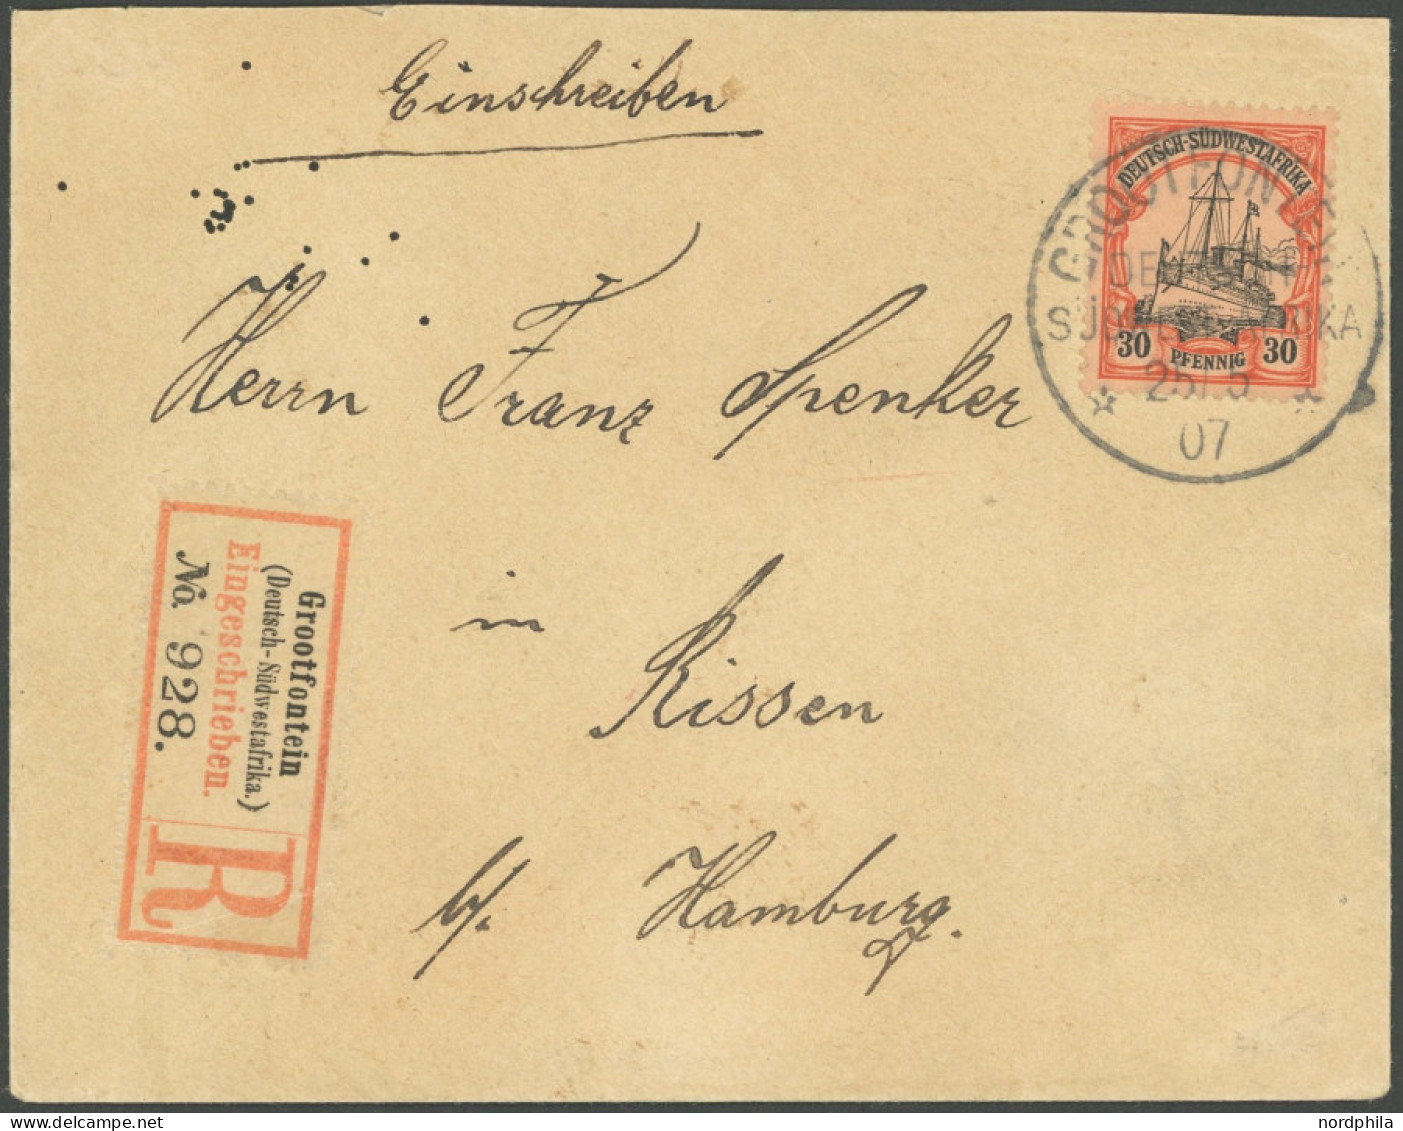 Einschreiben
DEUTSCH-SÜDWESTAFRIKA
30 PFENNIG 30
GROOTFONTEIN
SÜDWESTAFRIKA
25/5
07
Herrn Franz Spenker
in
Rissen
b/. Hamburg.
Grootfontein
(Deutsch-Südwestafrika.)
Eingeschrieben.
No. 928.
R
nordphila